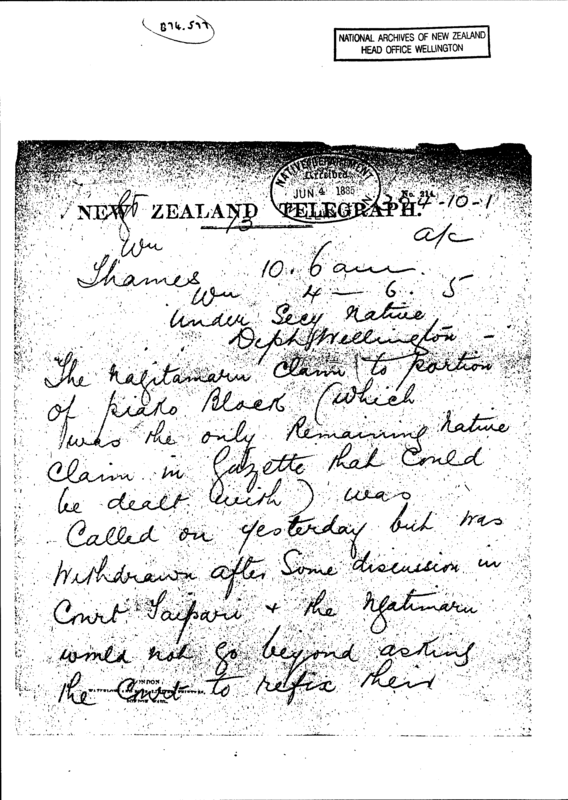 B74.577
NATIONAL ARCHIVES OF NEW ZEALAND
HEAD OFFICE WELLINGTON
NATIVE DEPARTMENT
Received
JUN. 4 1885
No. 214.
NEW ZEALAND TELEGRAPH.
85
/3
-10-1
a/c
Wn
Thames 10.6 am
Wn 4 - 6. 5
Under Secy Native
Dept Wellington -
The Ngitamaru claim to portion
of piako Block (which
was the only Remaining Native
Claim in Gazette that Could
be dealt with) was
Called on yesterday but was
Withdrawn after Some discussion in
Court Taipari & the Ngatimaru
would not go beyond asking
the Court to refix their
LONDON